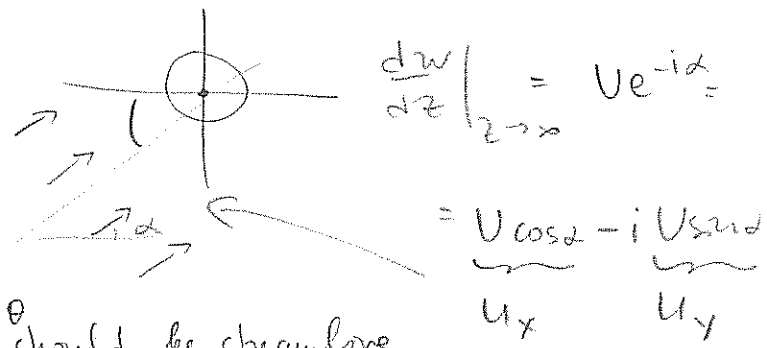 dw/dz |z→∞ = Ue^{-iα} =
α
= U cosα - i U sinα
u_x u_y
θ
should be streamline